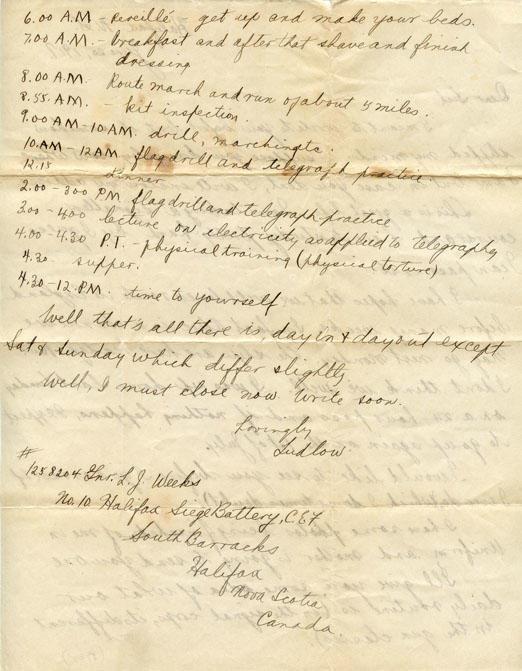 6.00 A.M - Reveillé - get up and make your beds.
7.00 A.M. - breakfast and after that shave and finish
dressing
8.00 A.M. Route march and run of about 5 miles.
8.55. A.M. - kit inspection.
9.00 AM - 10 A.M. drill, marching etc.
10. AM - 12 AM flag drill and telegraph practice.
12.15 Dinner
2.00 - 300 P.M. flag drill and telegraph practice
3.00 - 400 lecture on electricity, as applied to telegraphy
4.00 - 4.30 P.T. - physical training (physical torture)
4.30. supper.
4.30 - 12. P.M. time to yourself
Well that's all there is, day in & day out except
Sat & Sunday which differ slightly
Well, I must close now. Write soon.
Lovingly
Ludlow
#
1258204 Gnr. L. J. Weeks
No. 10 Halifax Siege Battery, C.E.F
South Barracks
Halifax
Nova Scotia
Canada